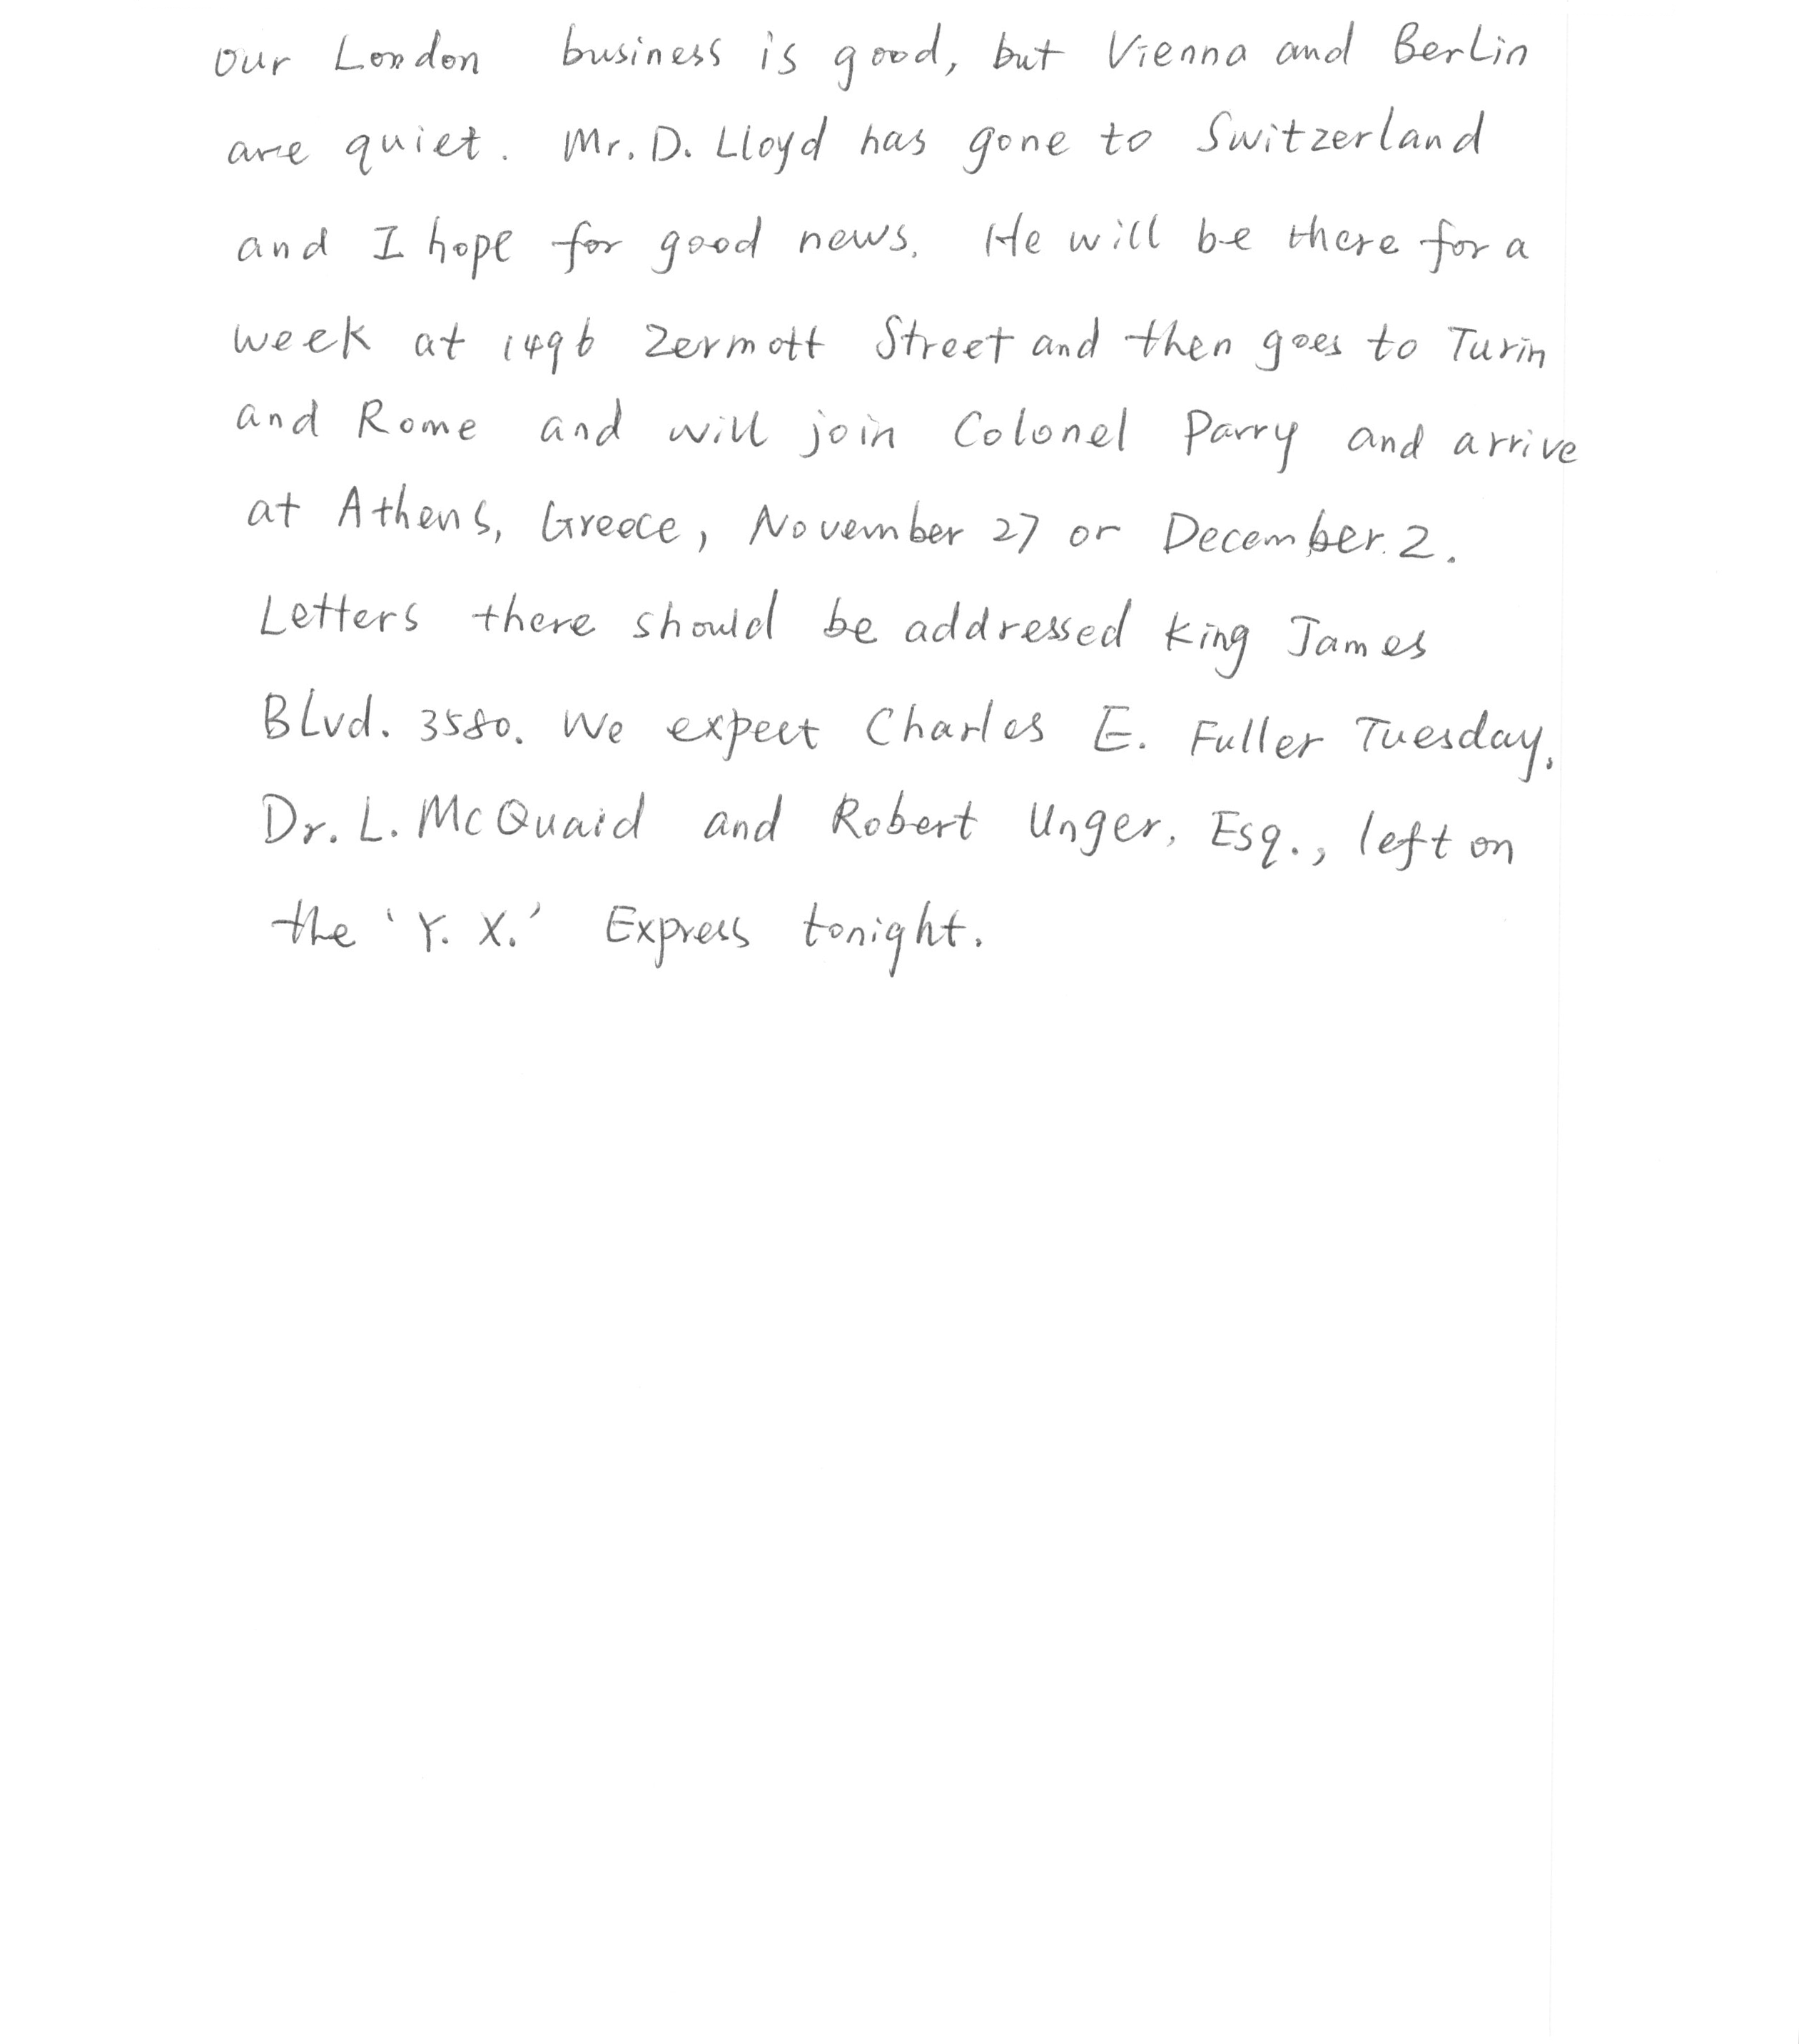 our London business is good, but Vienna and Berlin
are quiet. Mr. D. Lloyd has gone to Switzerland
and I hope for good news. He will be there for a
week at 1496 Zermott Street and then goes to Turin
and Rome and will join Colonel Parry and arrive
at Athens, Greece, November 27 or December 2.
Letters there should be addressed King James
Blvd. 3580. We expect Charles E. Fuller Tuesday.
Dr. L. McQuaid and Robert Unger, Esq., left on
the 'Y. X.' Express tonight.